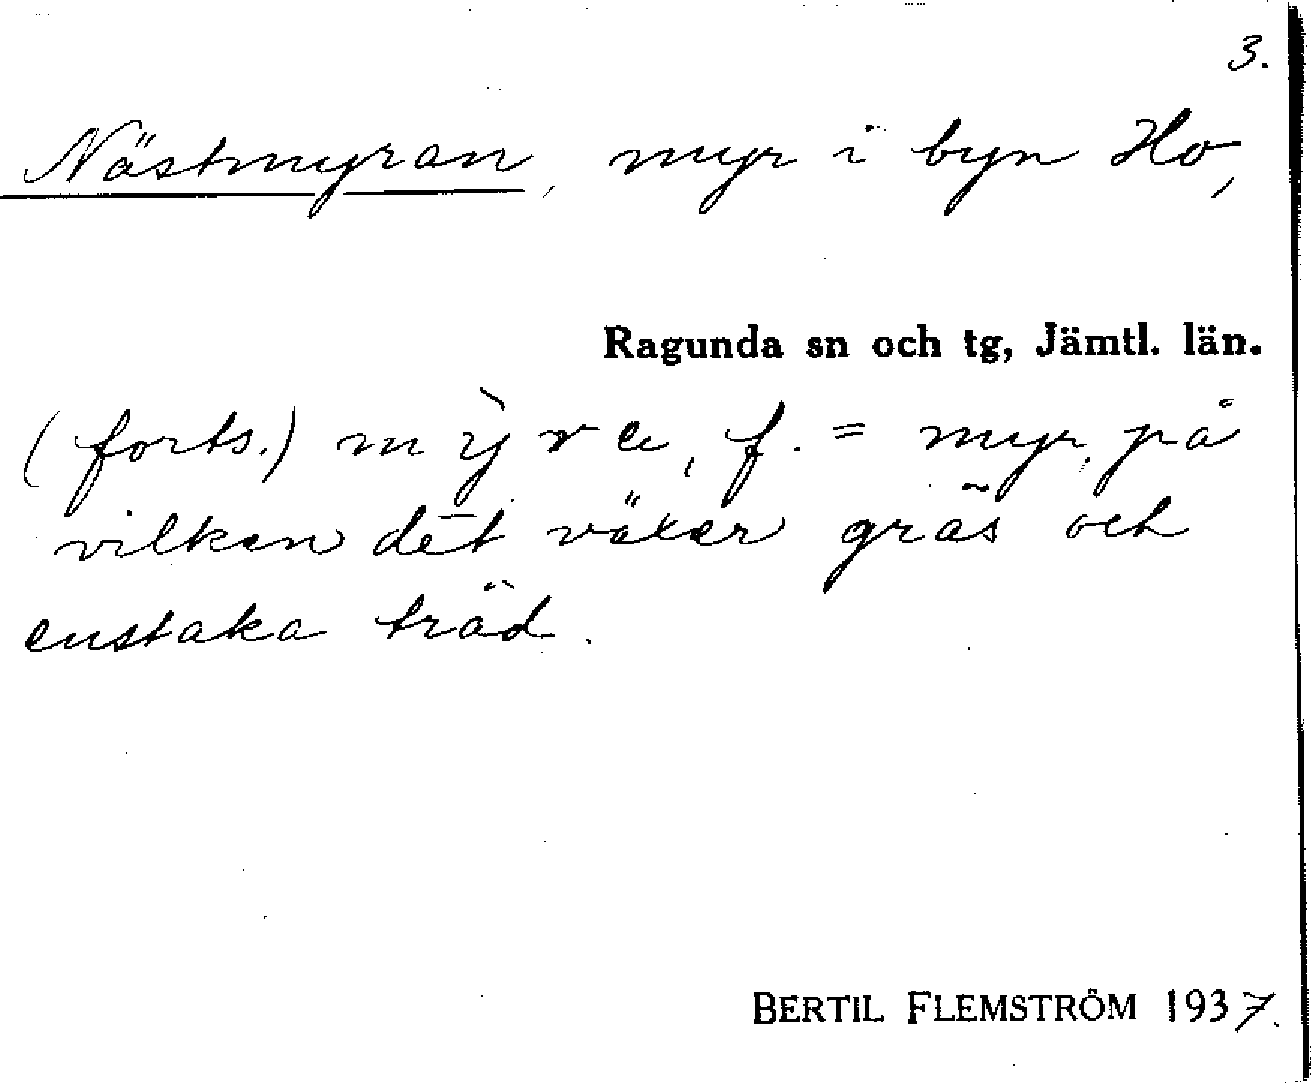 3.
Nästmyran, myr i byn Ho,
Ragunda sn och tg, Jämtl. län.
(forts.) , f. = myr, på
vilken det växer gräs och
enstaka träd.
BERTIL FLEMSTRÖM 1937.